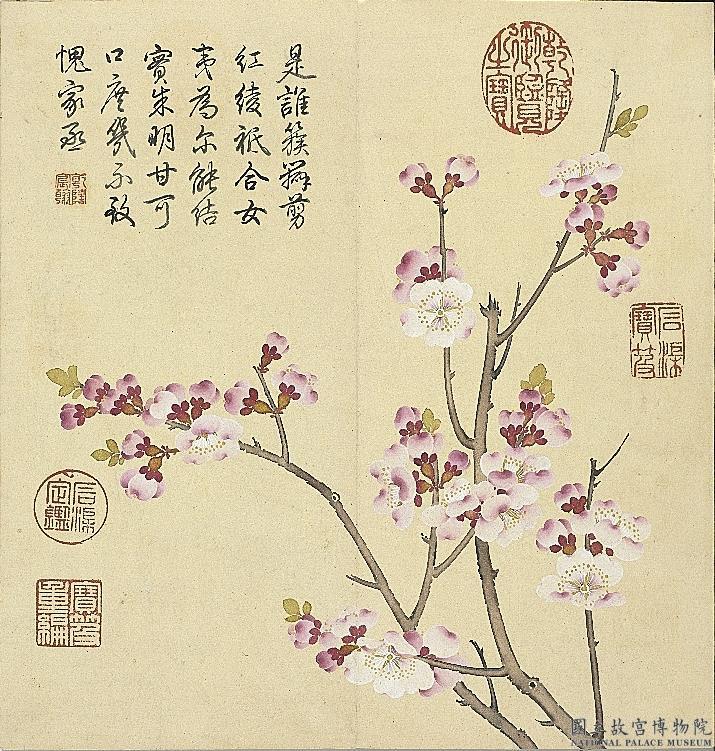 是誰簇瓣剪
紅綾祇合女
夷為尔能結
實朱明甘可
口庶幾不致
愧家丞
乾隆宸翰
乾隆御覽之寶
石渠寶笈
石渠定鑑
寶笈重編
國立故宮博物院
NATIONAL PALACE MUSEUM